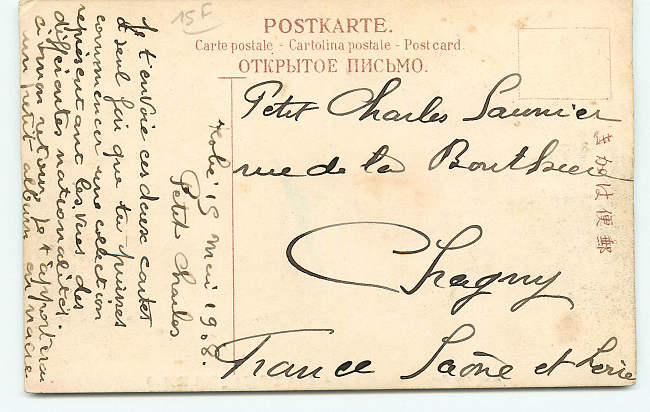 15 F
POSTKARTE.
Carte postale - Cartolina postale - Post card.
ОТКРЫТОЕ ПИСЬМО.
Petit Charles Saunier
rue de la
Chagny
France Saône et Loire
きがは便郵
Kobé 15 Mai 1908.
Petit Charles
Je t'envoie ces deux cartes
seul fai que tu puisses
commencer une collection
représentant les vues des
différentes nationalités.
à mon retour je t'apporterai
un petit album en nacre.